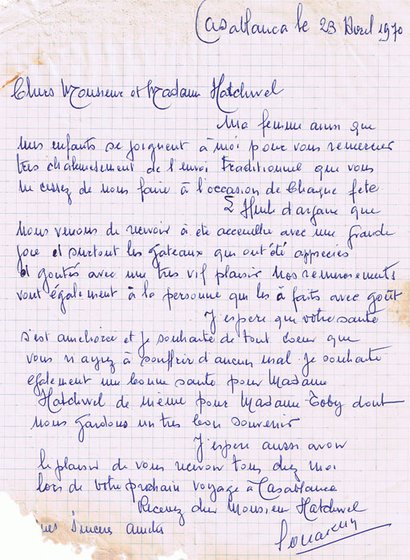 Casablanca le 23 Avril 1970
Chers Monsieur et Madame Hatchwel
Ma femme ainsi que
mes enfants se joignent à moi pour vous remercier
très chaleureusement de l'envoi traditionnel que vous
ne cessez de nous faire à l'occasion de chaque fete
L'Huile d'argane que
nous venons de recevoir à été accueillie avec une grande
joie et surtout les gateaux qui ont été appréciés
et goutés avec une très vif plaisir nos remerciements
vont également à la personne qui les à faits avec goût
J'espère que votre santé
s'est améliorée et je souhaite de tout coeur que
vous n'ayez à souffrir d'aucun mal je souhaite
également une bonne santé pour Madame
Hatchwel de même pour Madame Toby dont
nous gardons un très bon souvenir
J'espère aussi avoir
le plaisir de vous recevoir tous chez moi
lors de votre prochain voyage à Casablanca
Recevez cher Monsieur Hatchwel
mes sincères amitiés